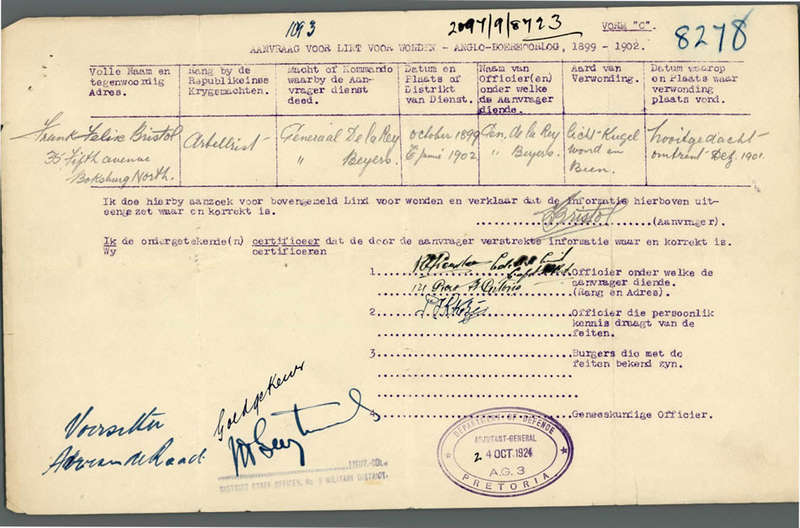 1093
2097/9/8723
VORM "C".
8278
AANVRAAG VOOR LINT VOOR WONDEN - ANGLO-BOEREOORLOG, 1899 - 1902.
Volle Naam en tegenwoordig Adres.
Rang by de Republikeinse Krygsmachten.
Macht of Kommando waarby de Aanvrager dienst deed.
Datum en Plaats of Distrikt van Dienst.
Naam van Officier(en) onder welke de Aanvrager diende.
Aard van Verwonding.
Datum waarop en Plaats waar verwonding plaats vond.
Frank Felix Bristol
35 Fifth avenue
Boksburg North.
Artillerist
Generaal De la Rey
" Beyers.
October 1899
Junie 1902
Gen. de la Rey
" Beyers.
licht-Kugel
wond in
Been.
Nooitgedacht
omtrent Dez. 1901
Ik doe hierby aanzoek voor bovengemeld Lint voor wonden en verklaar dat de informatie hierboven uit-
eengezet waar en korrekt is.
Bristol
(Aanvrager).
Ik de ondergetekende(n) certificeer dat de door de aanvrager verstrekte informatie waar en korrekt is.
Wy certificeren
1. Officier onder welke de
aanvrager diende.
(Rang en Adres).
2. Officier die persoonlik
kennis draagt van de
feiten.
3. Burgers die met de
feiten bekend zyn.
Geneeskundige Officier.
Goedgekeur
Voorsitter
Adviesende Raad
LIEUT.-COL.
DISTRICT STAFF OFFICER, No. MILITARY DISTRICT.
DEPARTMENT OF DEFENCE
ADJUTANT-GENERAL
24 OCT 1924
A.G. 3
PRETORIA